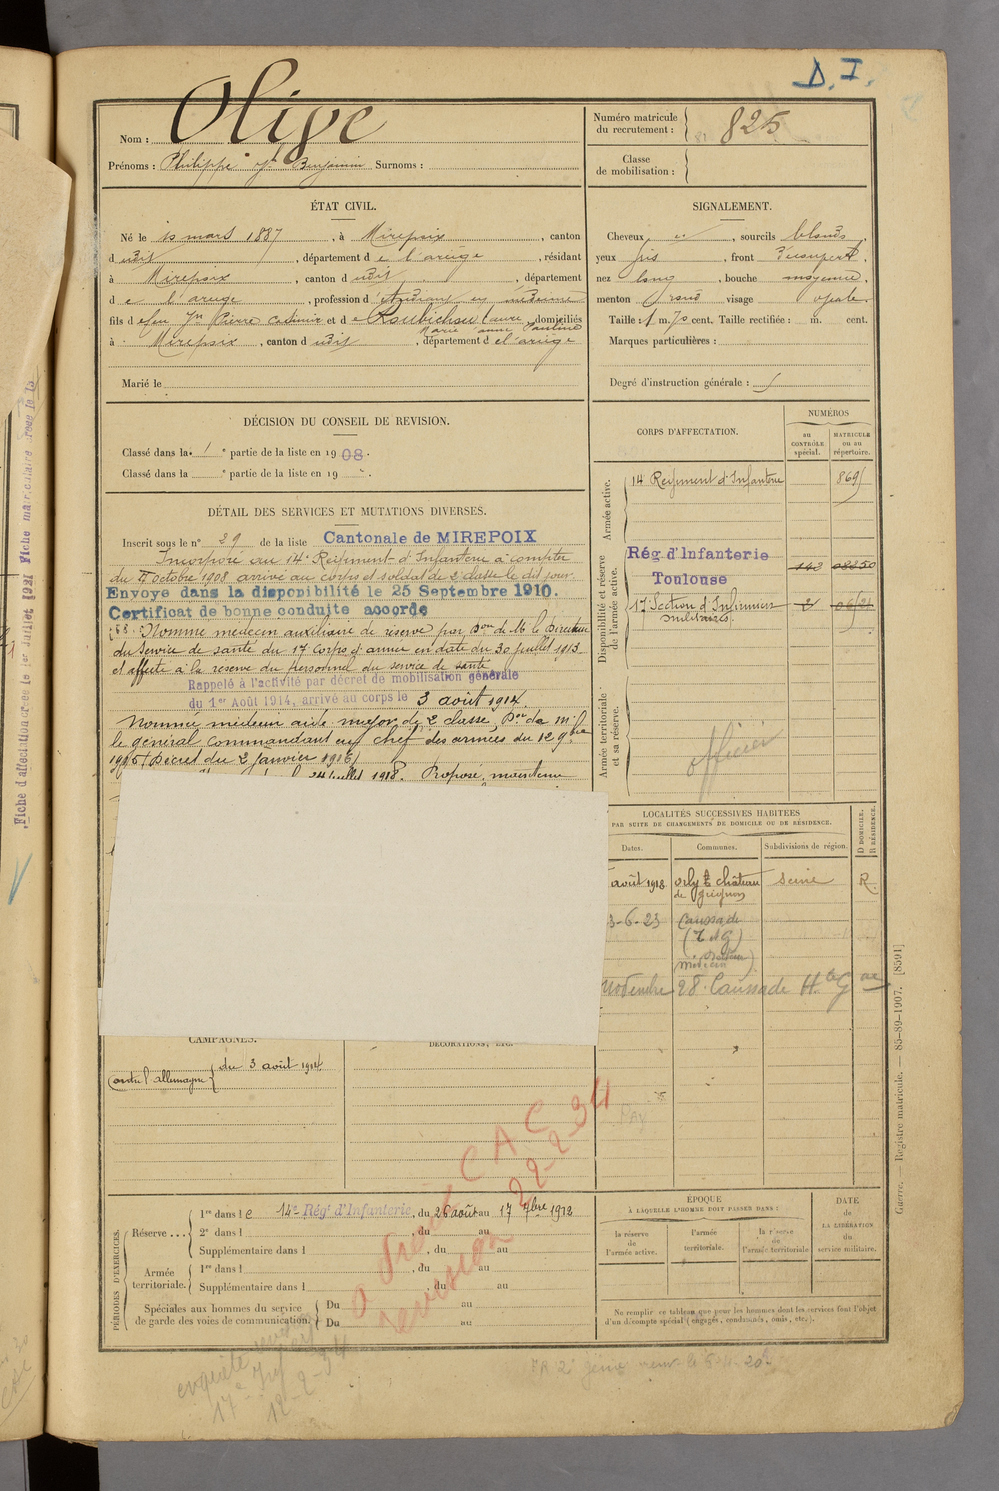 D. I.
Nom : Olive
Prénoms : Philippe Jh Benjamin Surnoms :
Numéro matricule
du recrutement : 825
Classe
de mobilisation :
ÉTAT CIVIL.
Né le 10 mars 1887, à Mirepoix, canton
d udit, département de l'ariège, résidant
à Mirepoix, canton d udit, département
de l'ariège, profession d'étudiant en médecine
fils de feu Jn Pierre Casimir et de Roubichou Laure, domiciliés
Marie anne Pauline
à Mirepoix, canton d udit, département de l'ariège
Marié le
SIGNALEMENT.
Cheveux, sourcils blonds,
yeux gris, front découvert,
nez long, bouche moyenne,
menton rond visage ovale
Taille : 1 m. 70 cent. Taille rectifiée : m. cent.
Marques particulières :
Degré d'instruction générale : 5
DÉCISION DU CONSEIL DE REVISION.
Classé dans la 1e partie de la liste en 1908.
Classé dans la e partie de la liste en 19 .
DÉTAIL DES SERVICES ET MUTATIONS DIVERSES.
Inscrit sous le n° 29 de la liste Cantonale de MIREPOIX
Incorporé au 14e Régiment d'Infanterie à compter
du 7 octobre 1908 arrivé au corps et soldat de 2e classe le dit jour.
Envoyé dans la disponibilité le 25 Septembre 1910.
Certificat de bonne conduite accordé
Nommé médecin auxiliaire de réserve par Don de Mr le Directeur
du Service de santé du 17 Corps d'armée en date du 30 juillet 1913
et affecté à la réserve du personnel du service de santé
Rappelé à l'activité par décret de mobilisation générale
du 1er Août 1914, arrivé au corps le 3 août 1914.
Nommé médecin aide major de 2e classe, Don de Mr
le général commandant en chef des armées du 12 9bre
1915 (Décret du 2 janvier 1916)
juillet 1918. Proposé maintenu
CORPS D'AFFECTATION.
NUMÉROS
au
CONTRÔLE
spécial.
MATRICULE
ou au
répertoire.
Armée active.
14 Régiment d'Infanterie 8695
Disponibilité et réserve
de l'armée active.
Rég d'Infanterie
Toulouse
143 02250
17e Section d'Infirmiers
militaires.
Armée territoriale
et sa réserve.
officier
LOCALITÉS SUCCESSIVES HABITÉES
PAR SUITE DE CHANGEMENTS DE DOMICILE OU DE RÉSIDENCE.
Dates. Communes. Subdivisions de région.
D DOMICILE.
R RÉSIDENCE.
août 1918 orly château Seine R.
de Grignon
3-6-23 Caussade
(T et G)
médecin
novembre 28 Caussade Hte Gne
CAMPAGNES.
DÉCORATIONS, ETC.
Contre l'allemagne du 3 août 1914
O
CAC
revision 22-2-34
PÉRIODES D'EXERCICES.
Réserve ... 1re dans le 14e Régt d'Infanterie, du 26 août au 17 7bre 1912
2e dans l , du au
Supplémentaire dans l , du au
Armée
territoriale.
1re dans l , du au
Supplémentaire dans l , du au
Spéciales aux hommes du service
de garde des voies de communication.
Du au
Du au
ÉPOQUE
À LAQUELLE L'HOMME DOIT PASSER DANS :
la réserve
de
l'armée active.
l'armée
territoriale.
la réserve
de
l'armée territoriale
DATE
de
LA LIBÉRATION
du
service militaire.
No remplir ce tableau que pour les hommes dont les services font l'objet
d'un décompte spécial (engagés, condamnés, omis, etc.).
enquête
17e
12-2-34
Guerre. Registre matricule. — 85-89-1907. [8591]
Fiche d'affectation créée le 1er Juillet 1921 Fiche matriculaire créée le 15